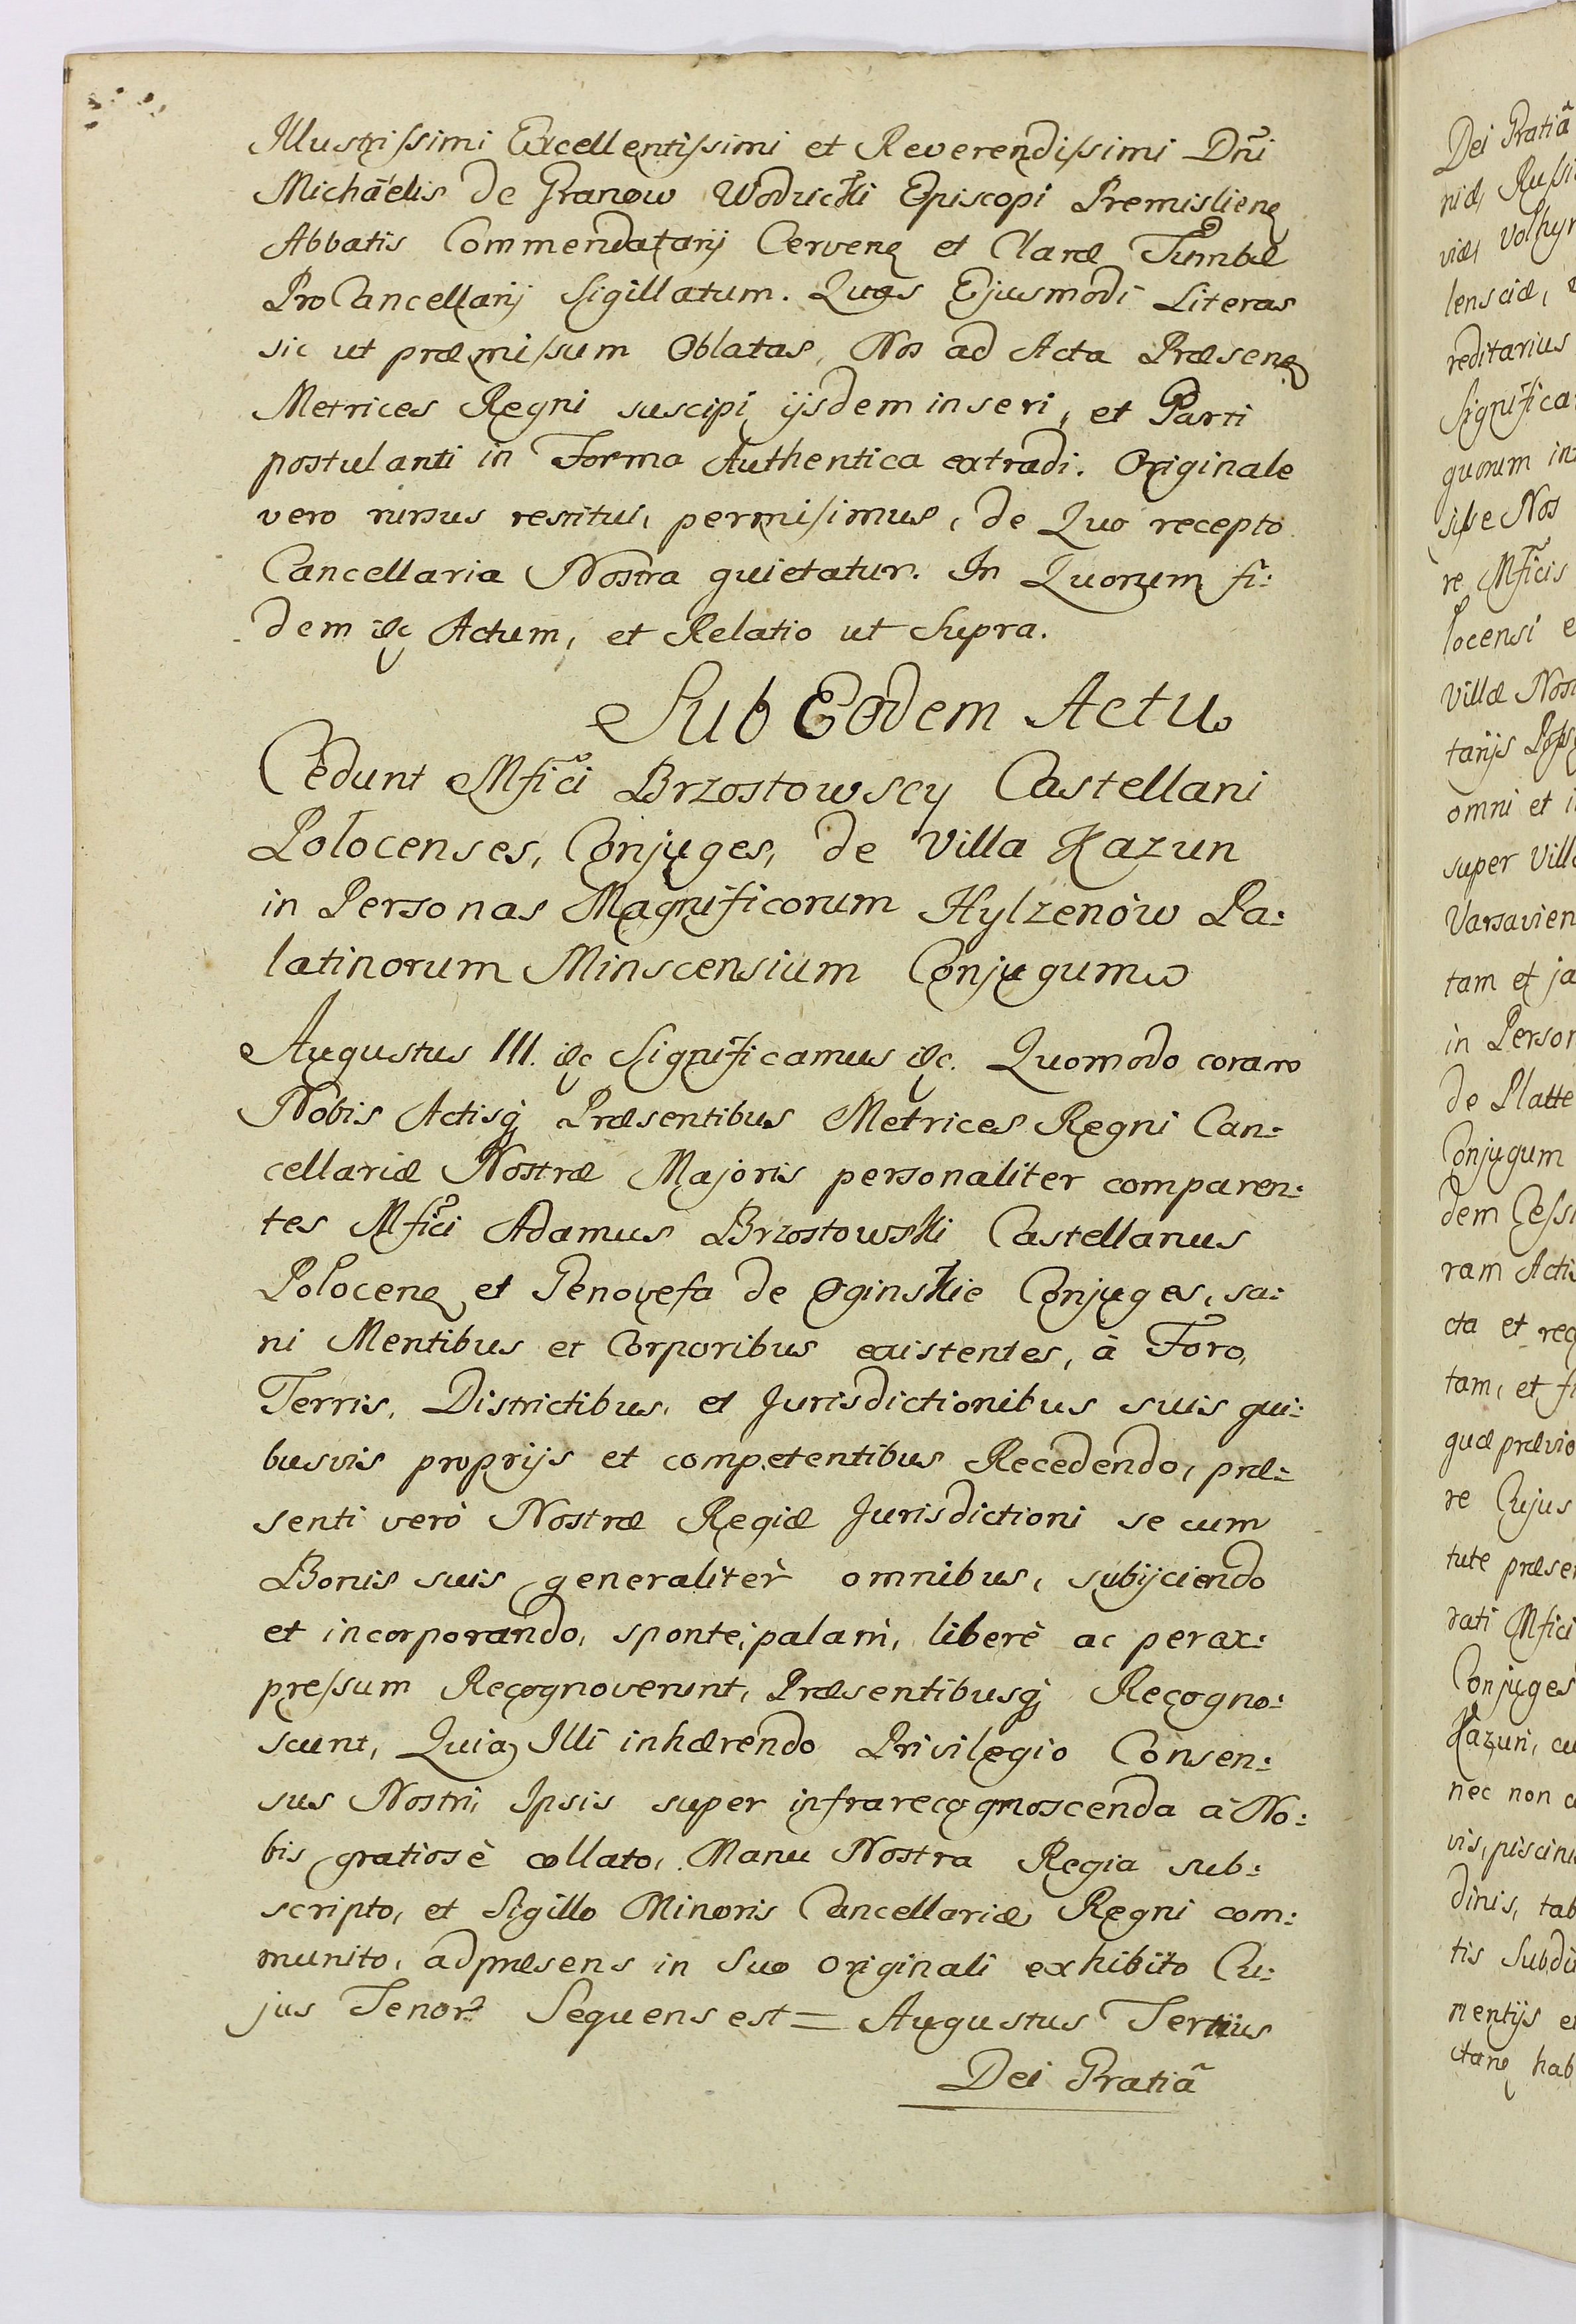 Illustrissimi Excellentissimi et Reverendissimi Dñi
Michaelis de Granow Wodzicki Episcopi Premislien
Abbatis Commendatarij Cerven et Claræ Tumbæ
ProCancellarij Sigillatum. Quas Ejusmodi Literas
sic ut præmissum Oblatas, Nos ad Acta Præsen
Metrices Regni suscipi ijsdem inseri, et Parti
postulanti in Forma Authentica extradi. Originale
vero rursus restitui, permisimus, de Quo recepto
Cancellaria Nostra quietatur. In Quorum fi:
dem &c Actum, et Relatio ut Supra.
Sub Eodem Actu
Cedunt Mfici Brzostowscy Castellani
Polocenses, Conjuges, de Villa Kazun
in Personas Magnificorum Hylzenow Pa:
latinorum Minscensium Conjugum
Augustus III. &c Significamus &c. Quomodo coram
Nobis Actisq Præsentibus Metrices Regni Can:
cellariæ Nostræ Majoris personaliter comparen:
tes Mfici Adamus Brzostowski Castellanus
Polocen et Genovefa de Oginskie Conjuges, sa:
ni Mentibus et Corporibus existentes, à Foro,
Terris, Districtibus, et Jurisdictionibus suis qui:
busvis proprijs et competentibus Recedendo, præ:
senti verò Nostræ Regiæ Jurisdictioni se cum
Bonis suis generalitèr omnibus, subijciendo
et incorporando, sponte, palam, liberè ac perex:
pressum Recognoverunt, Præsentibusq Recogno:
scunt, Quia Illi inhærendo Privilegio Consen:
sus Nostri, Ipsis super infrarecognoscenda à No:
bis gratiosè collato, Manu Nostra Regia sub:
scripto, et Sigillo Minoris Cancellariæ Regni com:
munito, ad præsens in Suo Originali exhibito Cu:
jus Tenor Sequens est = Augustus Tertius
Dei Gratiã
Dei Gratiã
niæ, Russi
viæ, Volhyn
lensciæ,
reditarius
Significa
quorum in
sisse Nos
re Mficis
locensi e
Villæ Nos
tarijs
omni et i
super Vill
Varsavien
tam et ja
in Person
de Platte
Conjugum
dem Cessi
ram Actis
cta et rec
tam, et f
quæ prævio
re Cujus
tute præse
rati Mfici
Conjuges
Kazun, cu
nec non
vis, piscin
dinis, tab
tis Subdi
mentijs e
hab